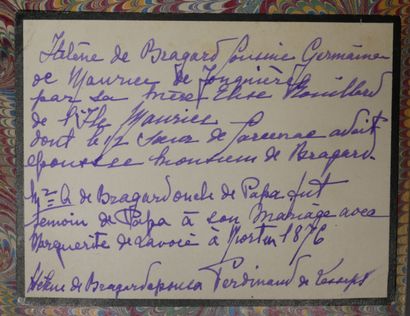 Hélène de Bragard Cousine Germaine
de Maurice de Jonquières
par sa mère Elise Rouillard
de l'Ile Maurice
dont la Sœur de avait
épousée Monsieur de Bragard.
Mr A de Bragard oncle de Papa fut
témoin de Papa à son Mariage avec
Marguerite de Savoie à 1876
Hélène de Bragard épousa Ferdinand de Lesseps